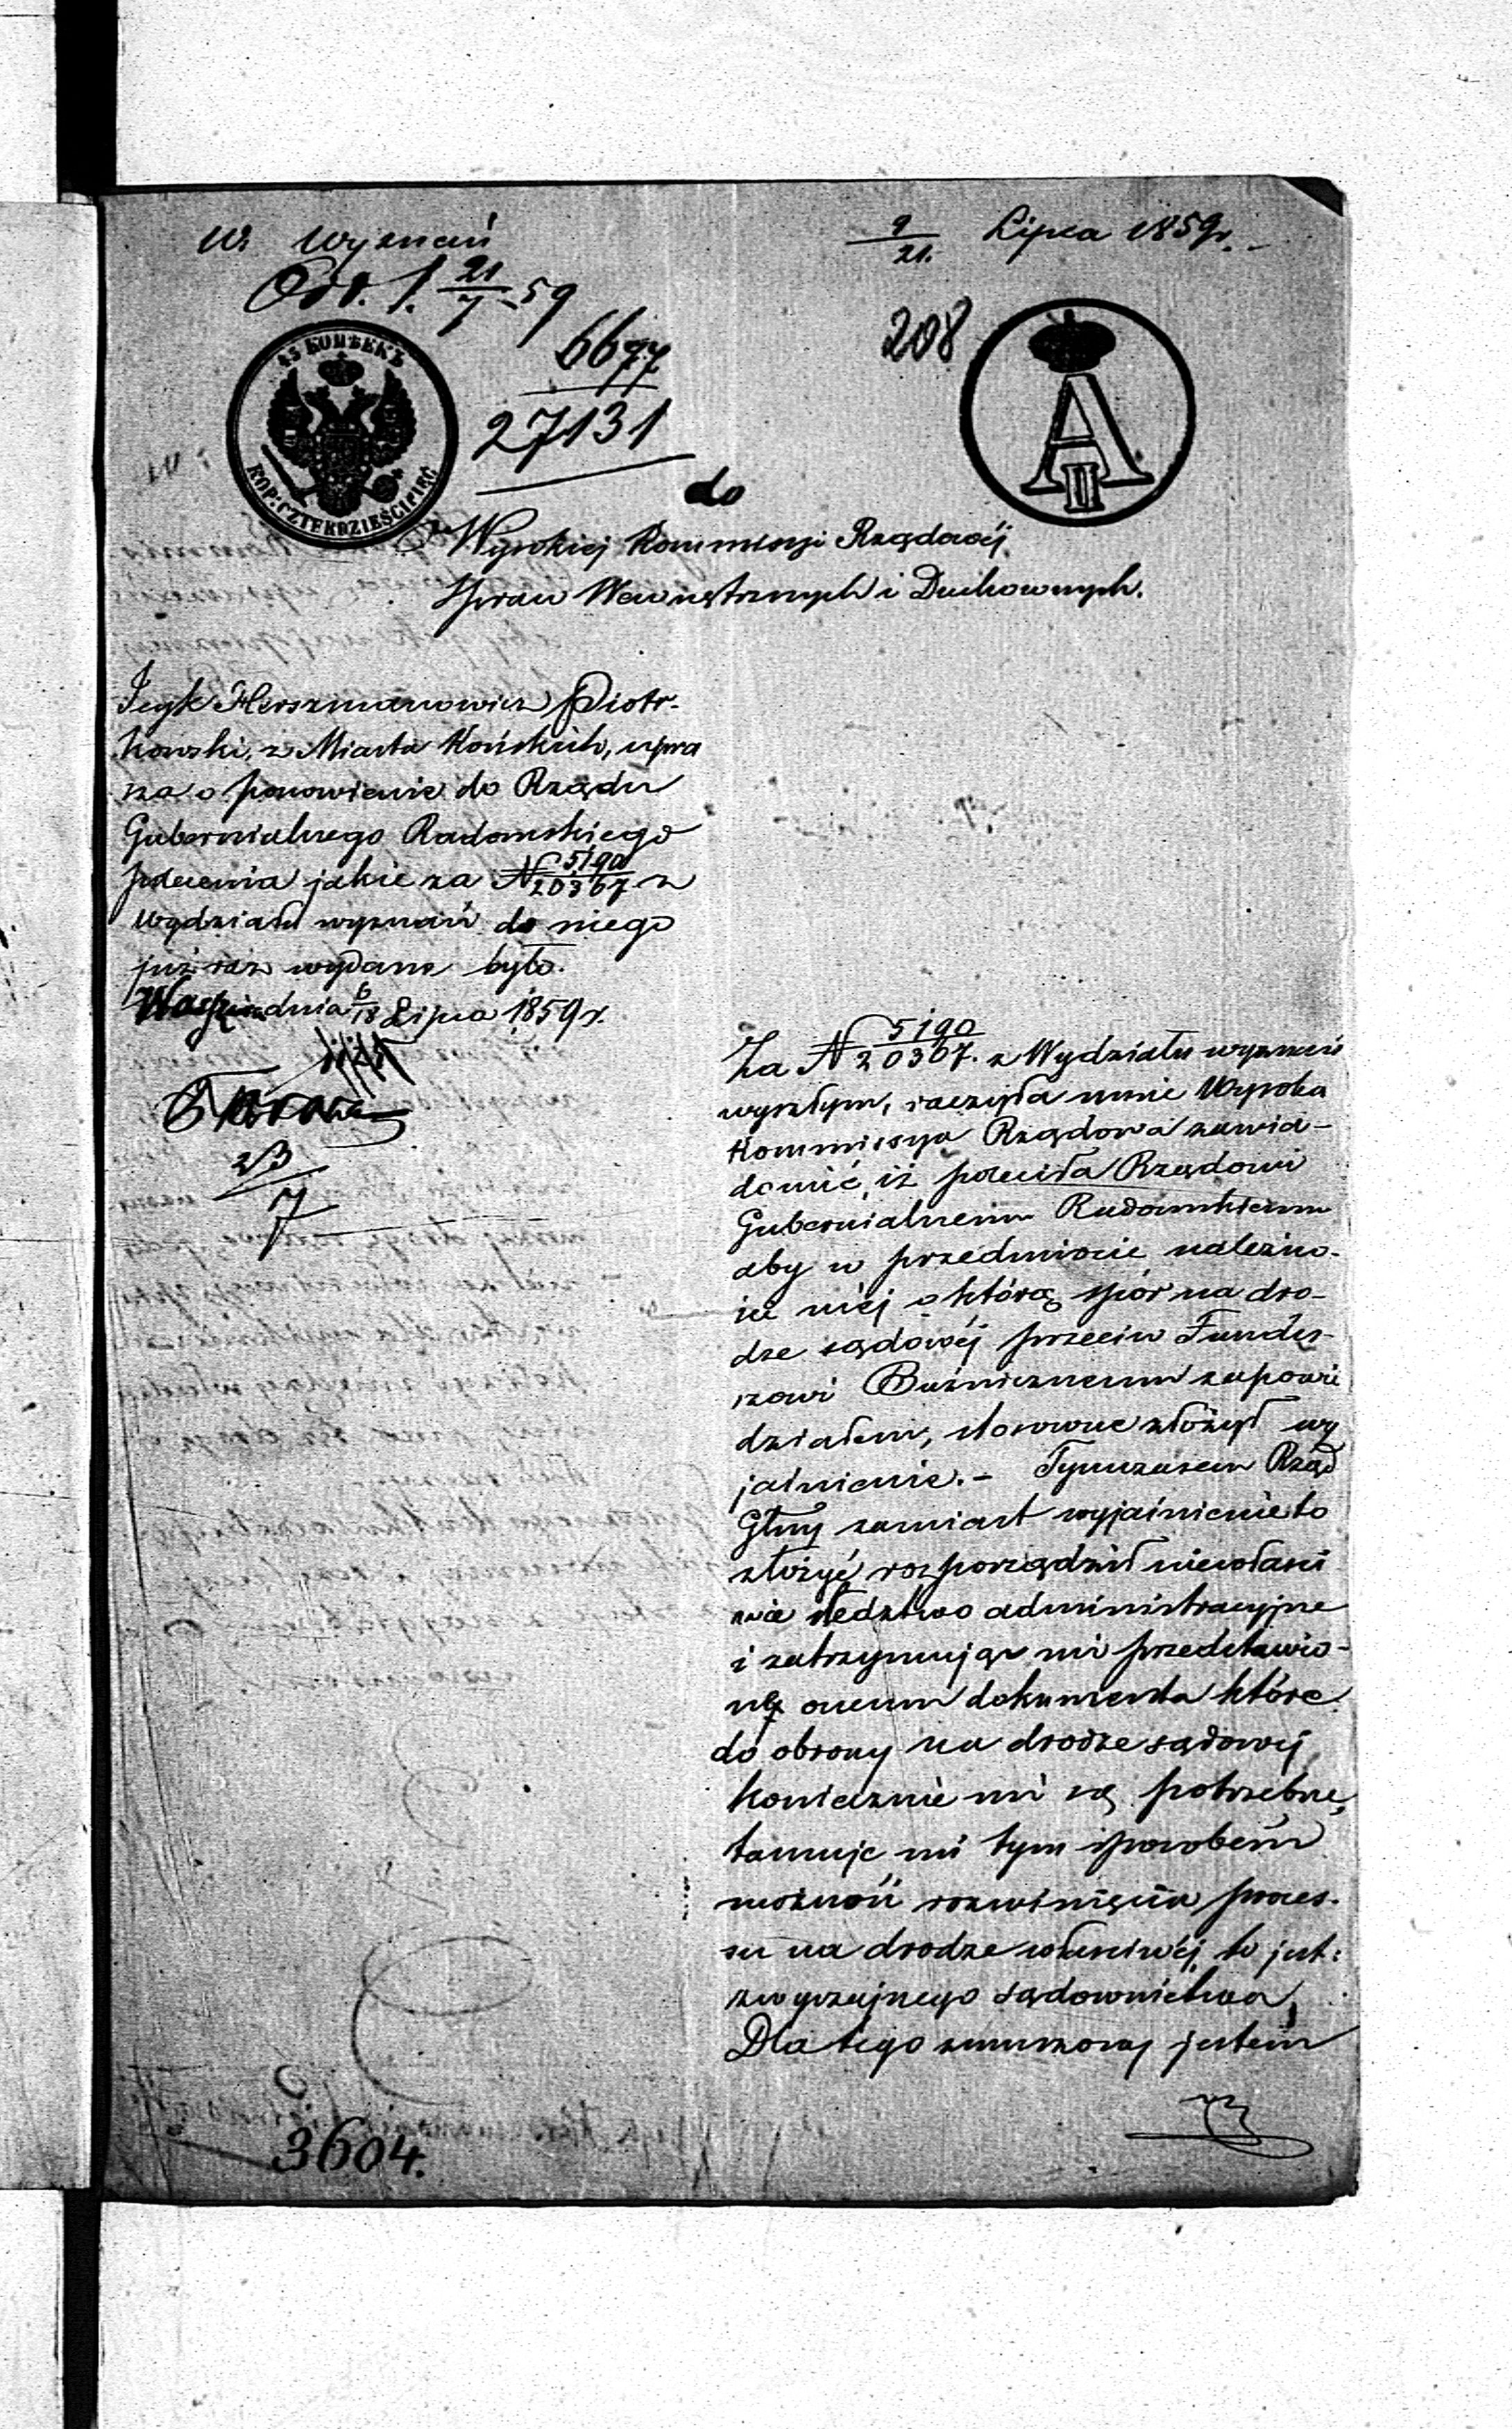 W. Wyznań
Odd. 1. 21/7 59
9/21. Lipca 1859 r.
6677
27131
208
45 КОПѢЕКЪ
KOP: CZTERDZIEŚCI PIĘĆ
A II
do
Wysokiej Kommissyi Rządowéj
Spraw Wewnętrznych i Duchownych.
Icyk Herszmanowicz Piotr-
kowski, z Miasta Końskich, upra
sza o ponowienie do Rządu
Gubernialnego Radomskiego
polecenia jakie za N 5190/20367 z
Wydziału wyznań do niego
już raz wydane było.
dnia 6/18 Lipca 1859 r.
23/7
Za N 5190/20367. z Wydziału wyznań
wyszłym, raczyła mnie Wysoka
Kommissya Rządowa zawia-
domić, iż poleciła Rządowi
Gubernialnemu Radomskiemu
aby w przedmiocie należno-
ści méj o którą spór na dro-
dze sądowéj przeciw Fundu-
szowi Bużnicznemu zapowie
działem, stosowne złożył wy
jaśnienie. – Tymczasem Rząd
Glny zamiast wyjaśnienie to
złożyć rozporządził niewłaści
wie śledztwo administracyjne
i zatrzymując mi przedstawio-
ne onemu dokumenta które
do obrony na drodze sądowéj
koniecznie mi są potrzebne,
tamuje mi tym sposobem
możność rozwinięcia proces-
su na drodze właściwéj, to jest:
zwyczajnego sądownictwa,
Dla tego zmuszony jestem
3604.